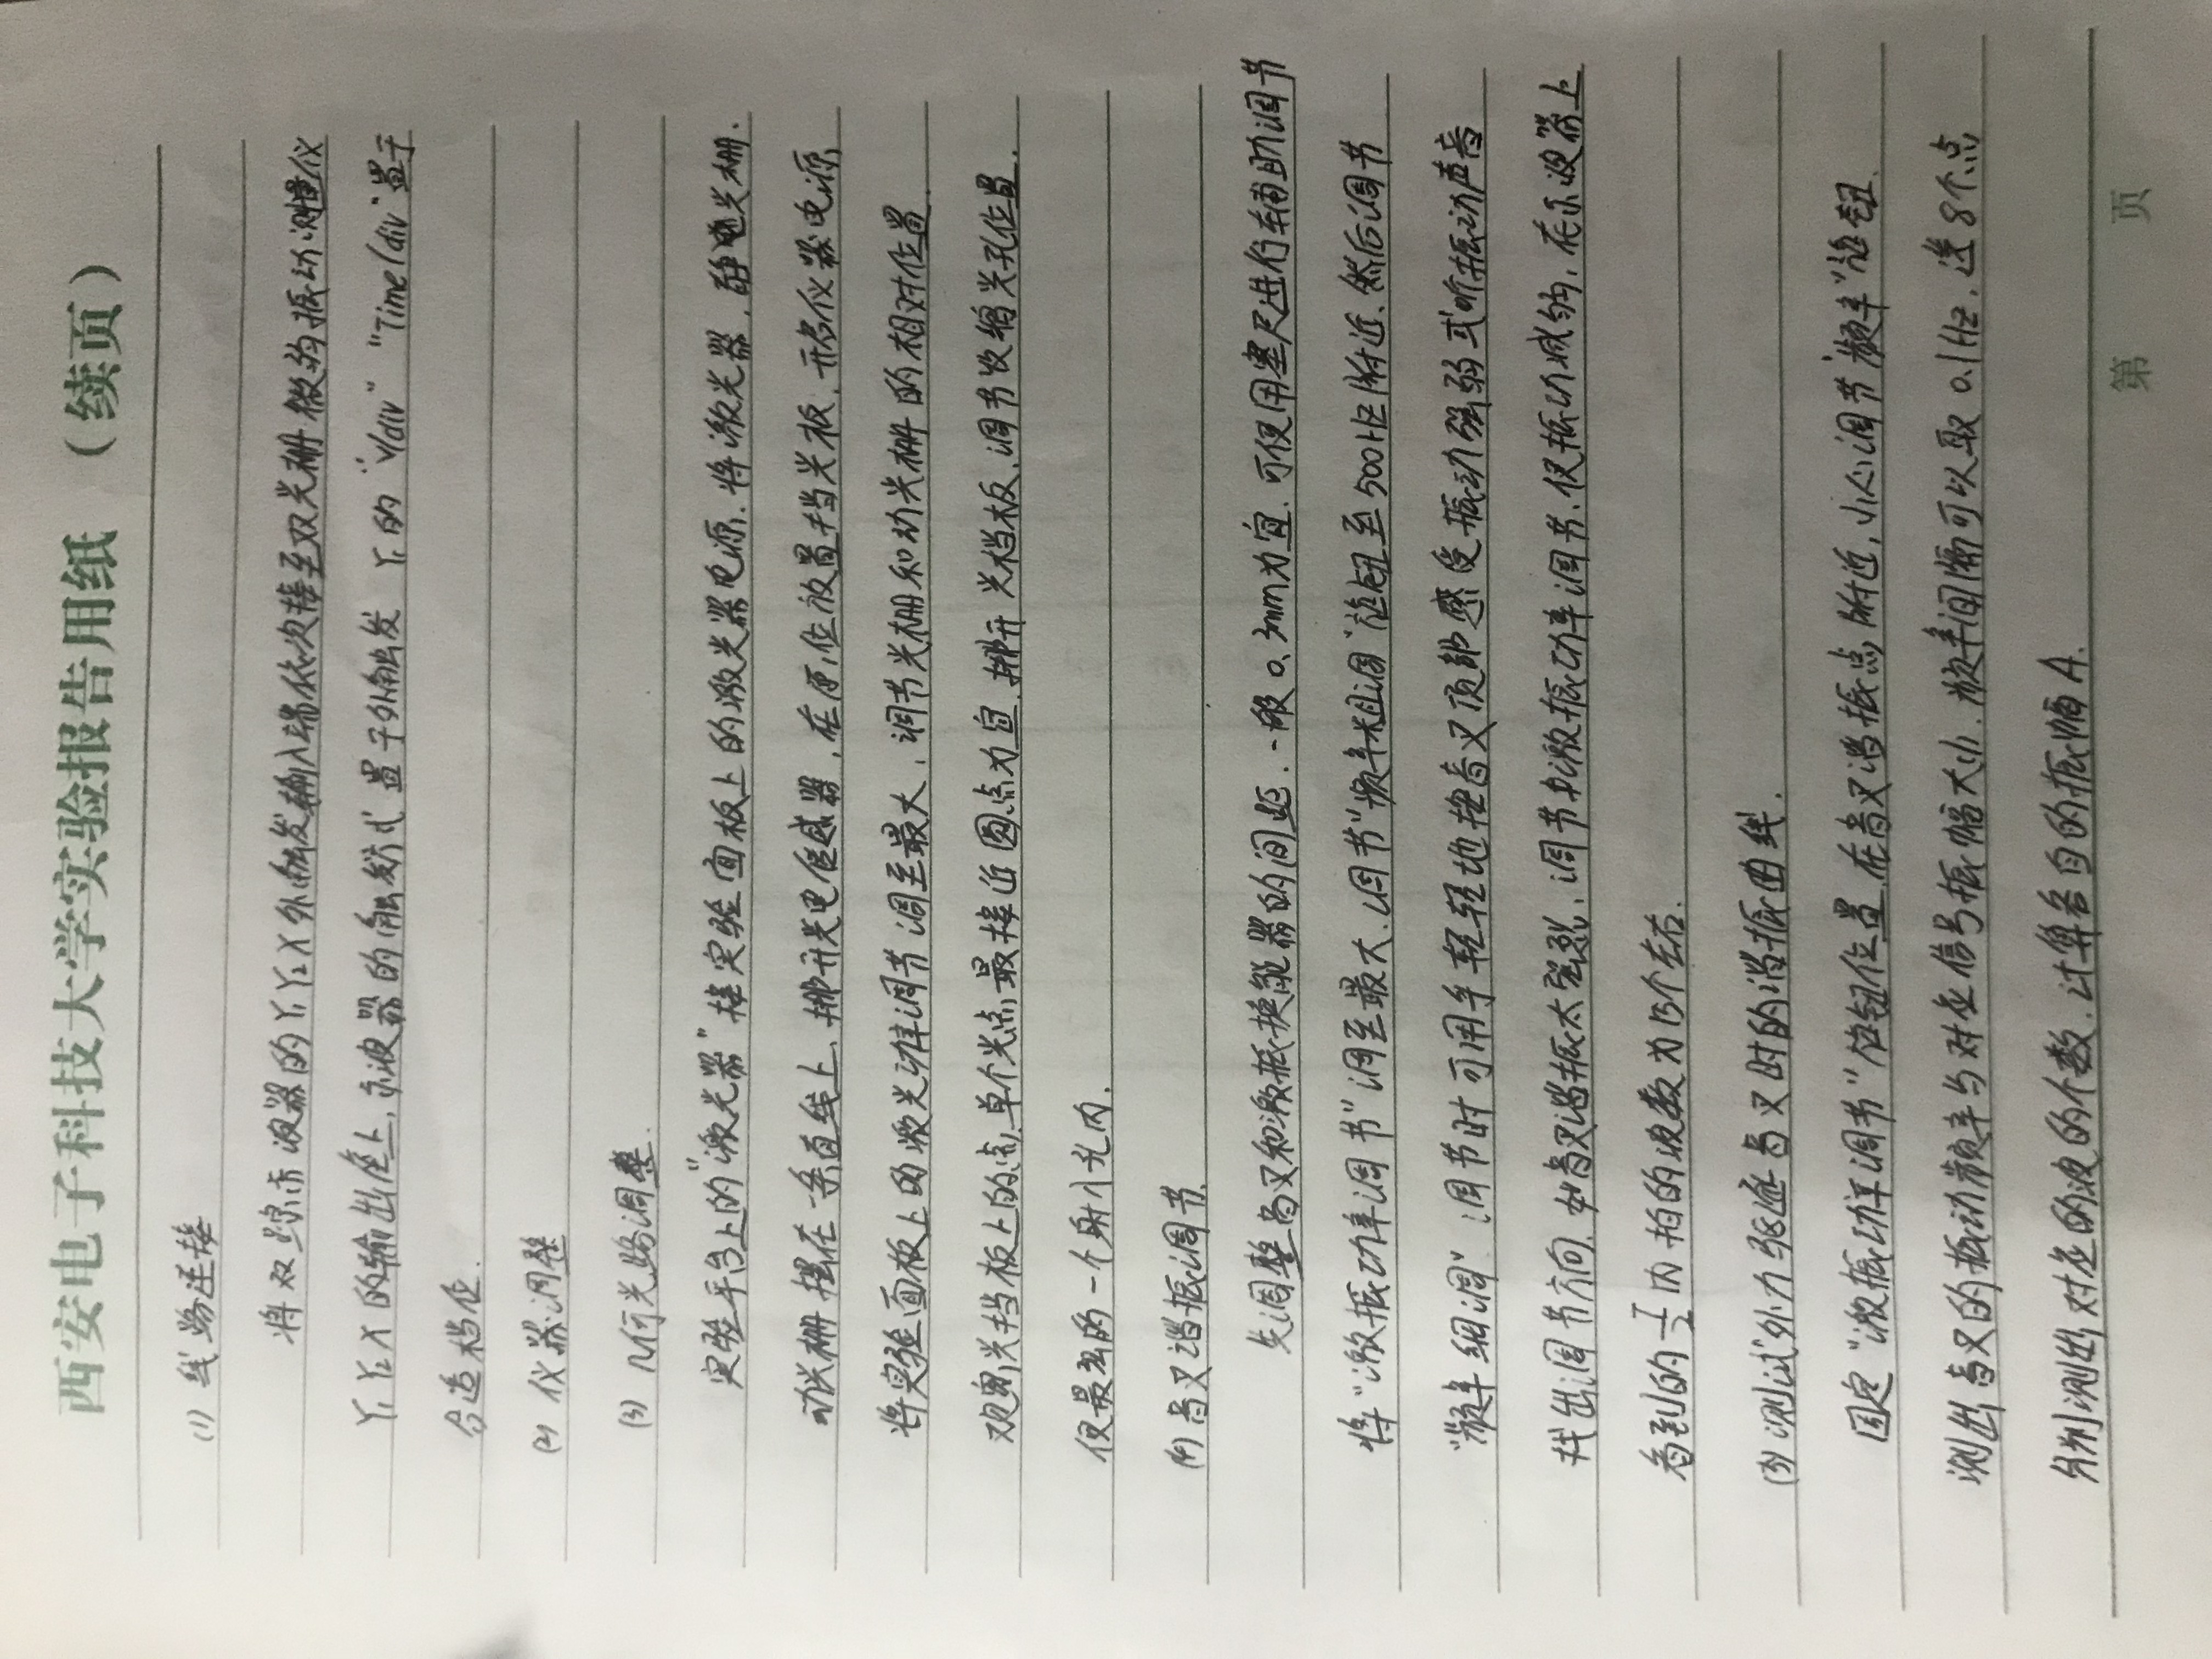 西安电子科技大学实验报告用纸 （续页）
(1) 线路连接
将双踪示波器的Y₁Y₂X外触发输入端依次接至双光栅微弱振动测量仪
Y₁Y₂X的输出座上,示波器的触发方式置于外触发 Y₁的"V/div" "Time/div"置于
合适档位.
(2) 仪器调整
(3) 几何光路调整.
实验平台上的"激光器"接实验面板上的激光器电源.将激光器,静光栅.
动光栅摆在一条直线上、挪开光电传感器,在原位放置挡光板,开启仪器电源,
将实验面板上的激光功率调节调至最大,调节光栅和动光栅的相对位置.
观察光挡板上的点,单个光点最接近圆点为宜.挪开光档板,调节收缩光孔位置.
使最强的一个射小孔内.
(4) 音叉谐振调节.
先调整音叉和激振换能器的间距.一般0.3mm为宜.可使用塞尺进行辅助调节
将"激振功率调节"调至最大.调节"频率粗调"旋钮至500Hz附近.然后调节
"频率细调" 调节时可用手轻轻地按音叉顶部感受振动强弱或听振动声音
找出调节方向.如音叉谐振太强烈,调节激振功率调节.使振动减弱,在示波器上
看到的T/2内拍的波数为15个左右.
(5) 测试外力驱逐音叉时的谐振曲线.
固定"激振功率调节"旋钮位置.在音叉谐振点附近,小心调节"频率"旋钮.
测出音叉的振动频率与对应信号振幅大小.频率间隔可以取0.1Hz.选8个点
分别测出对应的波的个数.计算各自的振幅A.
第 页